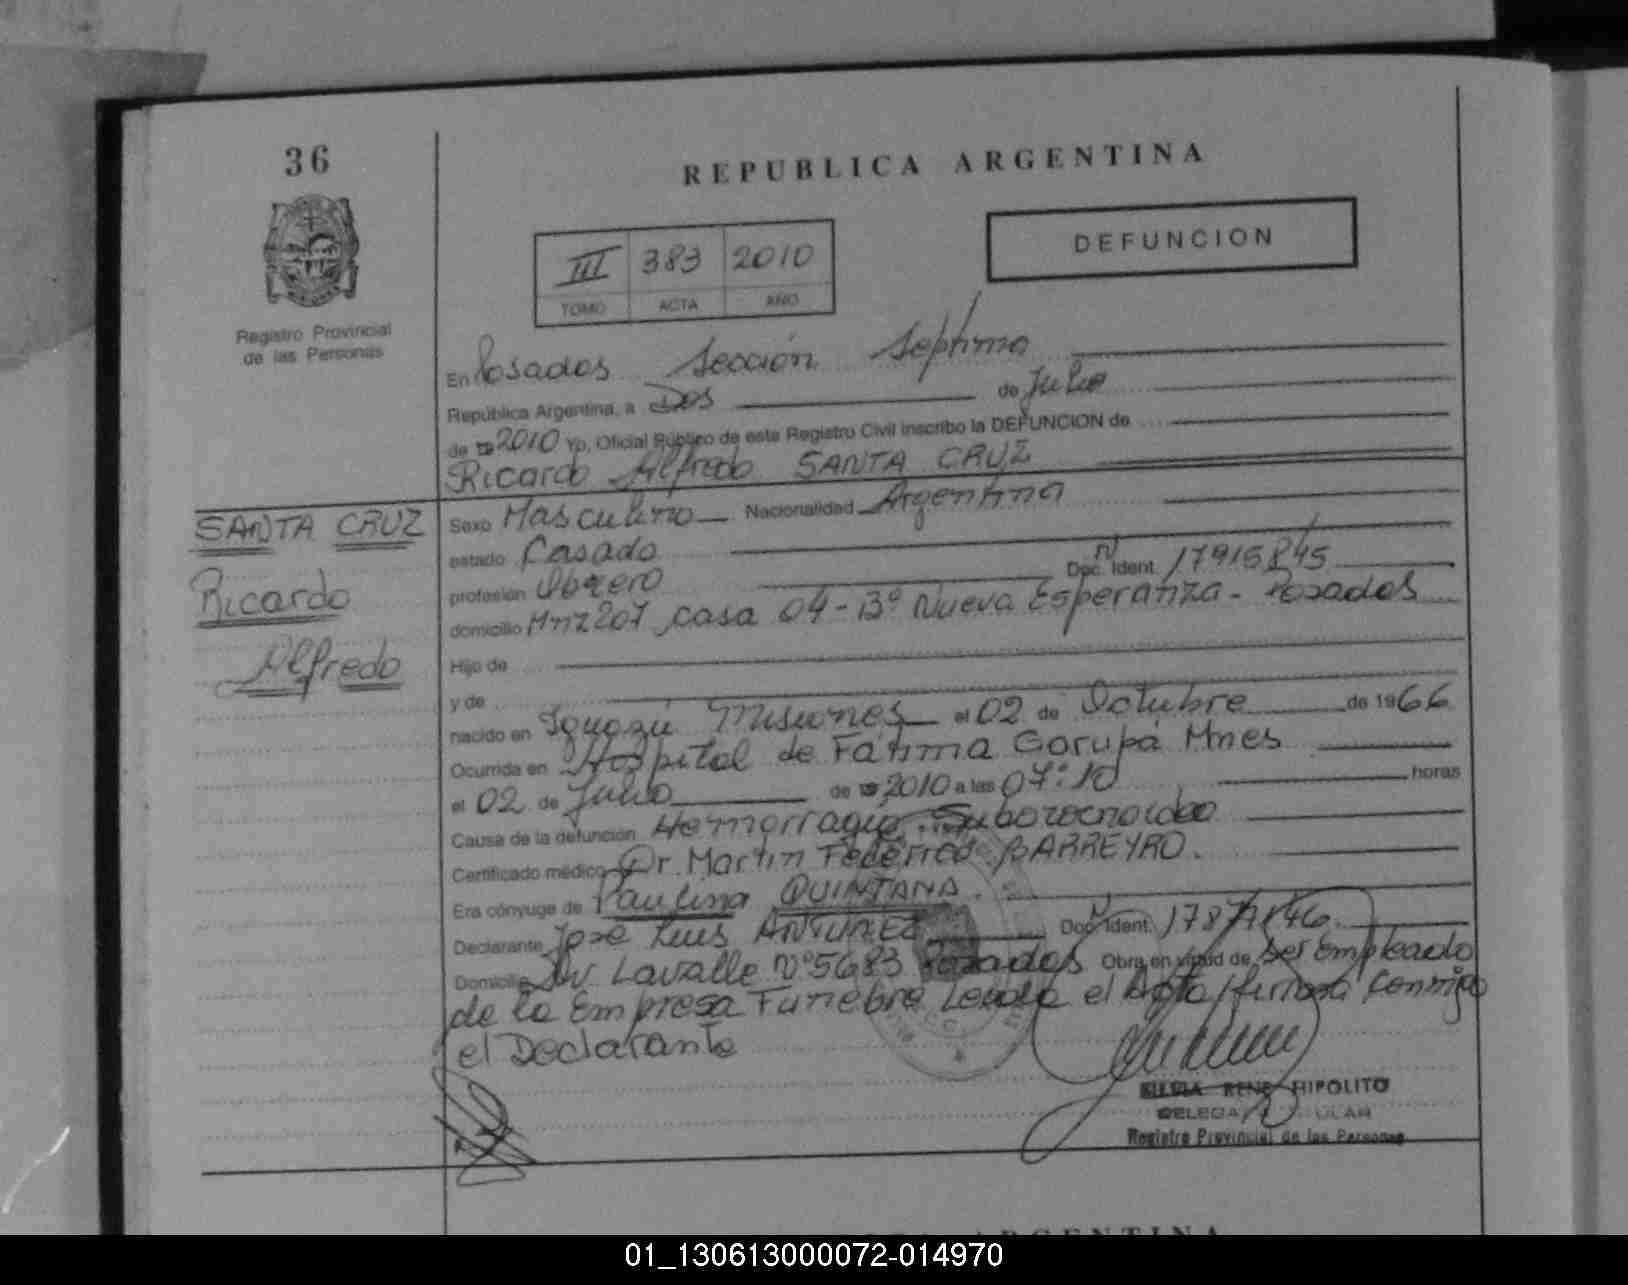 36
REPUBLICA ARGENTINA
DEFUNCION
III 383 2010
TOMO ACTA AÑO
Registro Provincial
de las Personas
En Posadas Sección Septima
República Argentina, a Dos de Julio
de 2010 Yo, Oficial Público de este Registro Civil inscribo la DEFUNCION de
Ricardo Alfredo SANTA CRUZ
SANTA CRUZ
Ricardo
Alfredo
Sexo Masculino Nacionalidad Argentina
estado Casado
profesión Obrero Doc. Ident. 17915845
domicilio Mnz 207 casa 04 - Bº Nueva Esperanza - Posadas
Hijo de
y de
nacido en Iguazú Misiones el 02 de Octubre de 1966
Ocurrida en Hospital de Fátima Garupá Mnes
el 02 de Julio de 2010 a las 07:10 horas
Causa de la defunción Hemorragia Subaracnoidea
Certificado médico Dr. Martin Federico BARREYRO.
Era cónyuge de Paulina QUINTANA.
Declarante José Luis ANTUNEZ Doc. Ident.
Domicilio Av. Lavalle Nº 5683 Posadas Obra en virtud de ser Empleado
de la Empresa Funebre Leida el Acta firma conmigo
el Declarante
RENE HIPOLITO
Registro Provincial de las Personas
ARGENTINA
01_130613000072-014970